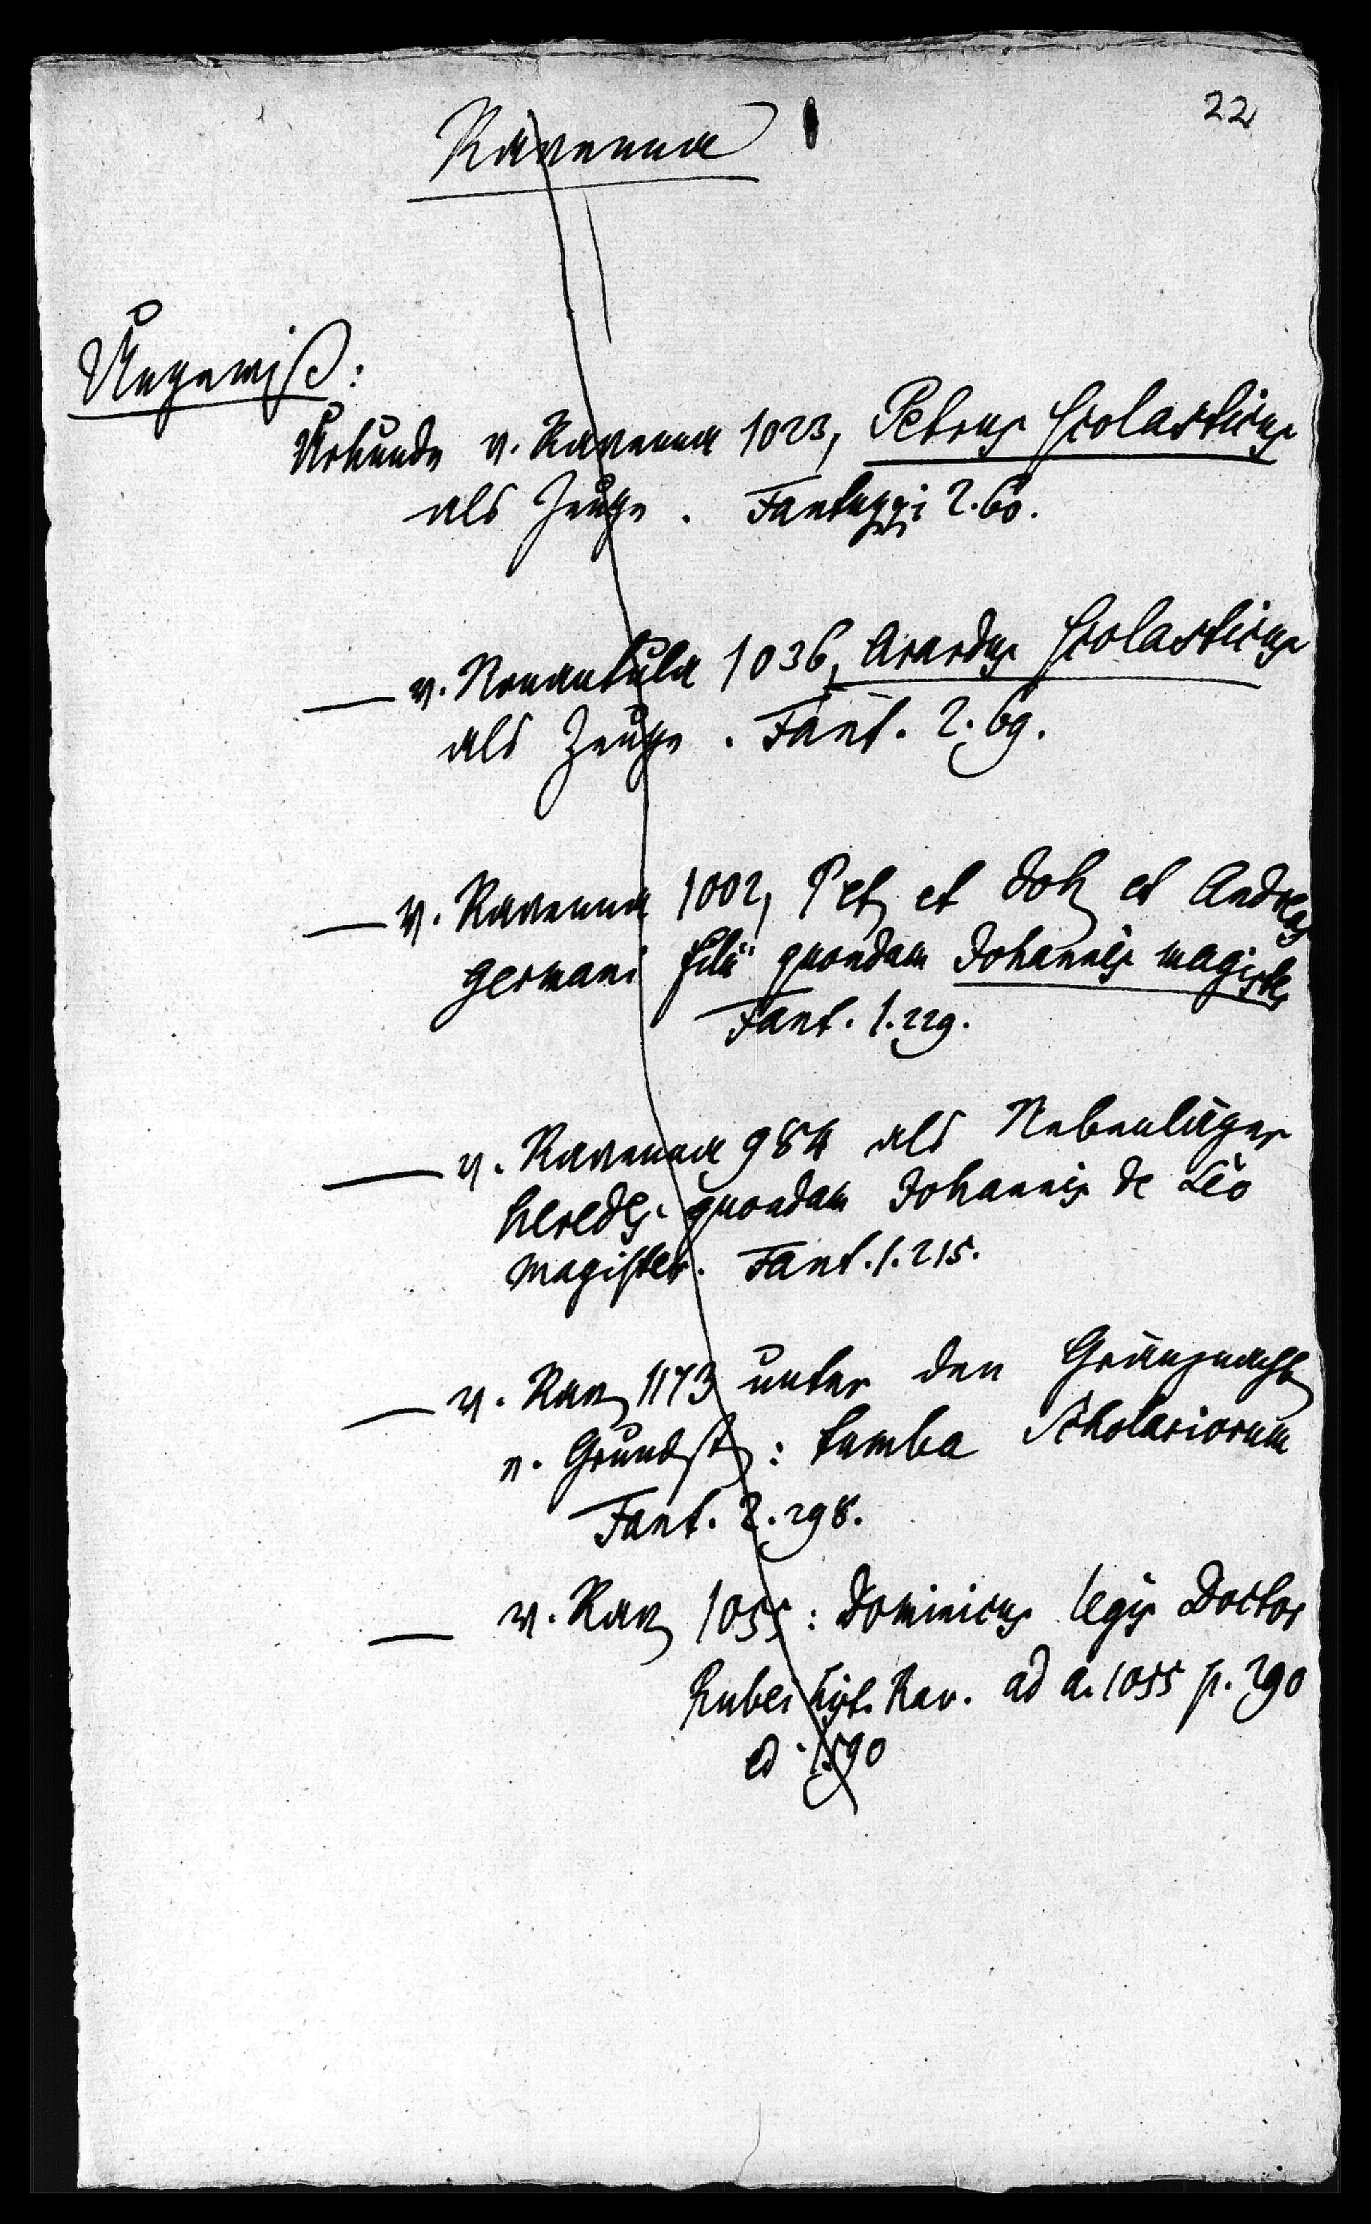 22
Ravenna
Ungewiß:
Urkunde v. Ravenna 1023, Petrus scolasticus
als Zeuge. Fantuzzi 2.60.
— v. Nonantula 1036, Arardus scolasticus
als Zeuge. Fant. 2.69.
— v. Ravenna 1002, Pet et Joh et Andreas
germani filii quondam Johannis magister
Fant. 1.229.
— v. Ravenna 984 als Nebenläger
heredes quondam Johannis de Leo
magister. Fant. 1.215.
— v. Rav 1173 unter den
e. Grundst: tumba Scholariorum
Fant. 2.298.
— v. Rav 1055: Dominicus legis Doctor
Rubei hist. Rav. ad a. 1055 p. 290
ed. 1590